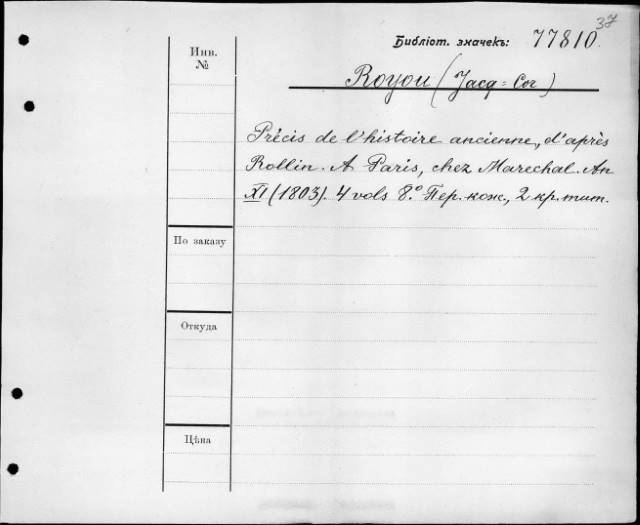 37
Библіот. значекъ: 77810.
Инв.
№
Royou (Jacq=Cor)
Précis de l'histoire ancienne, d'après
Rollin. A Paris, chez Marechal. An
XI (1803). 4 vols 8.° Пер. кож., 2 кр. тит.
По заказу
Откуда
Цѣна